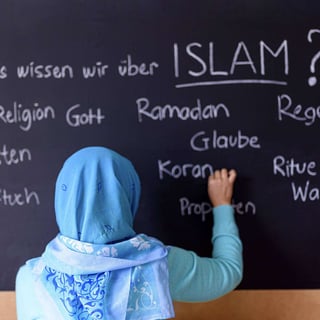 s wissen wir über ISLAM?
Religion Gott Ramadan Rege
Glaube
Koran Ritue
Wa